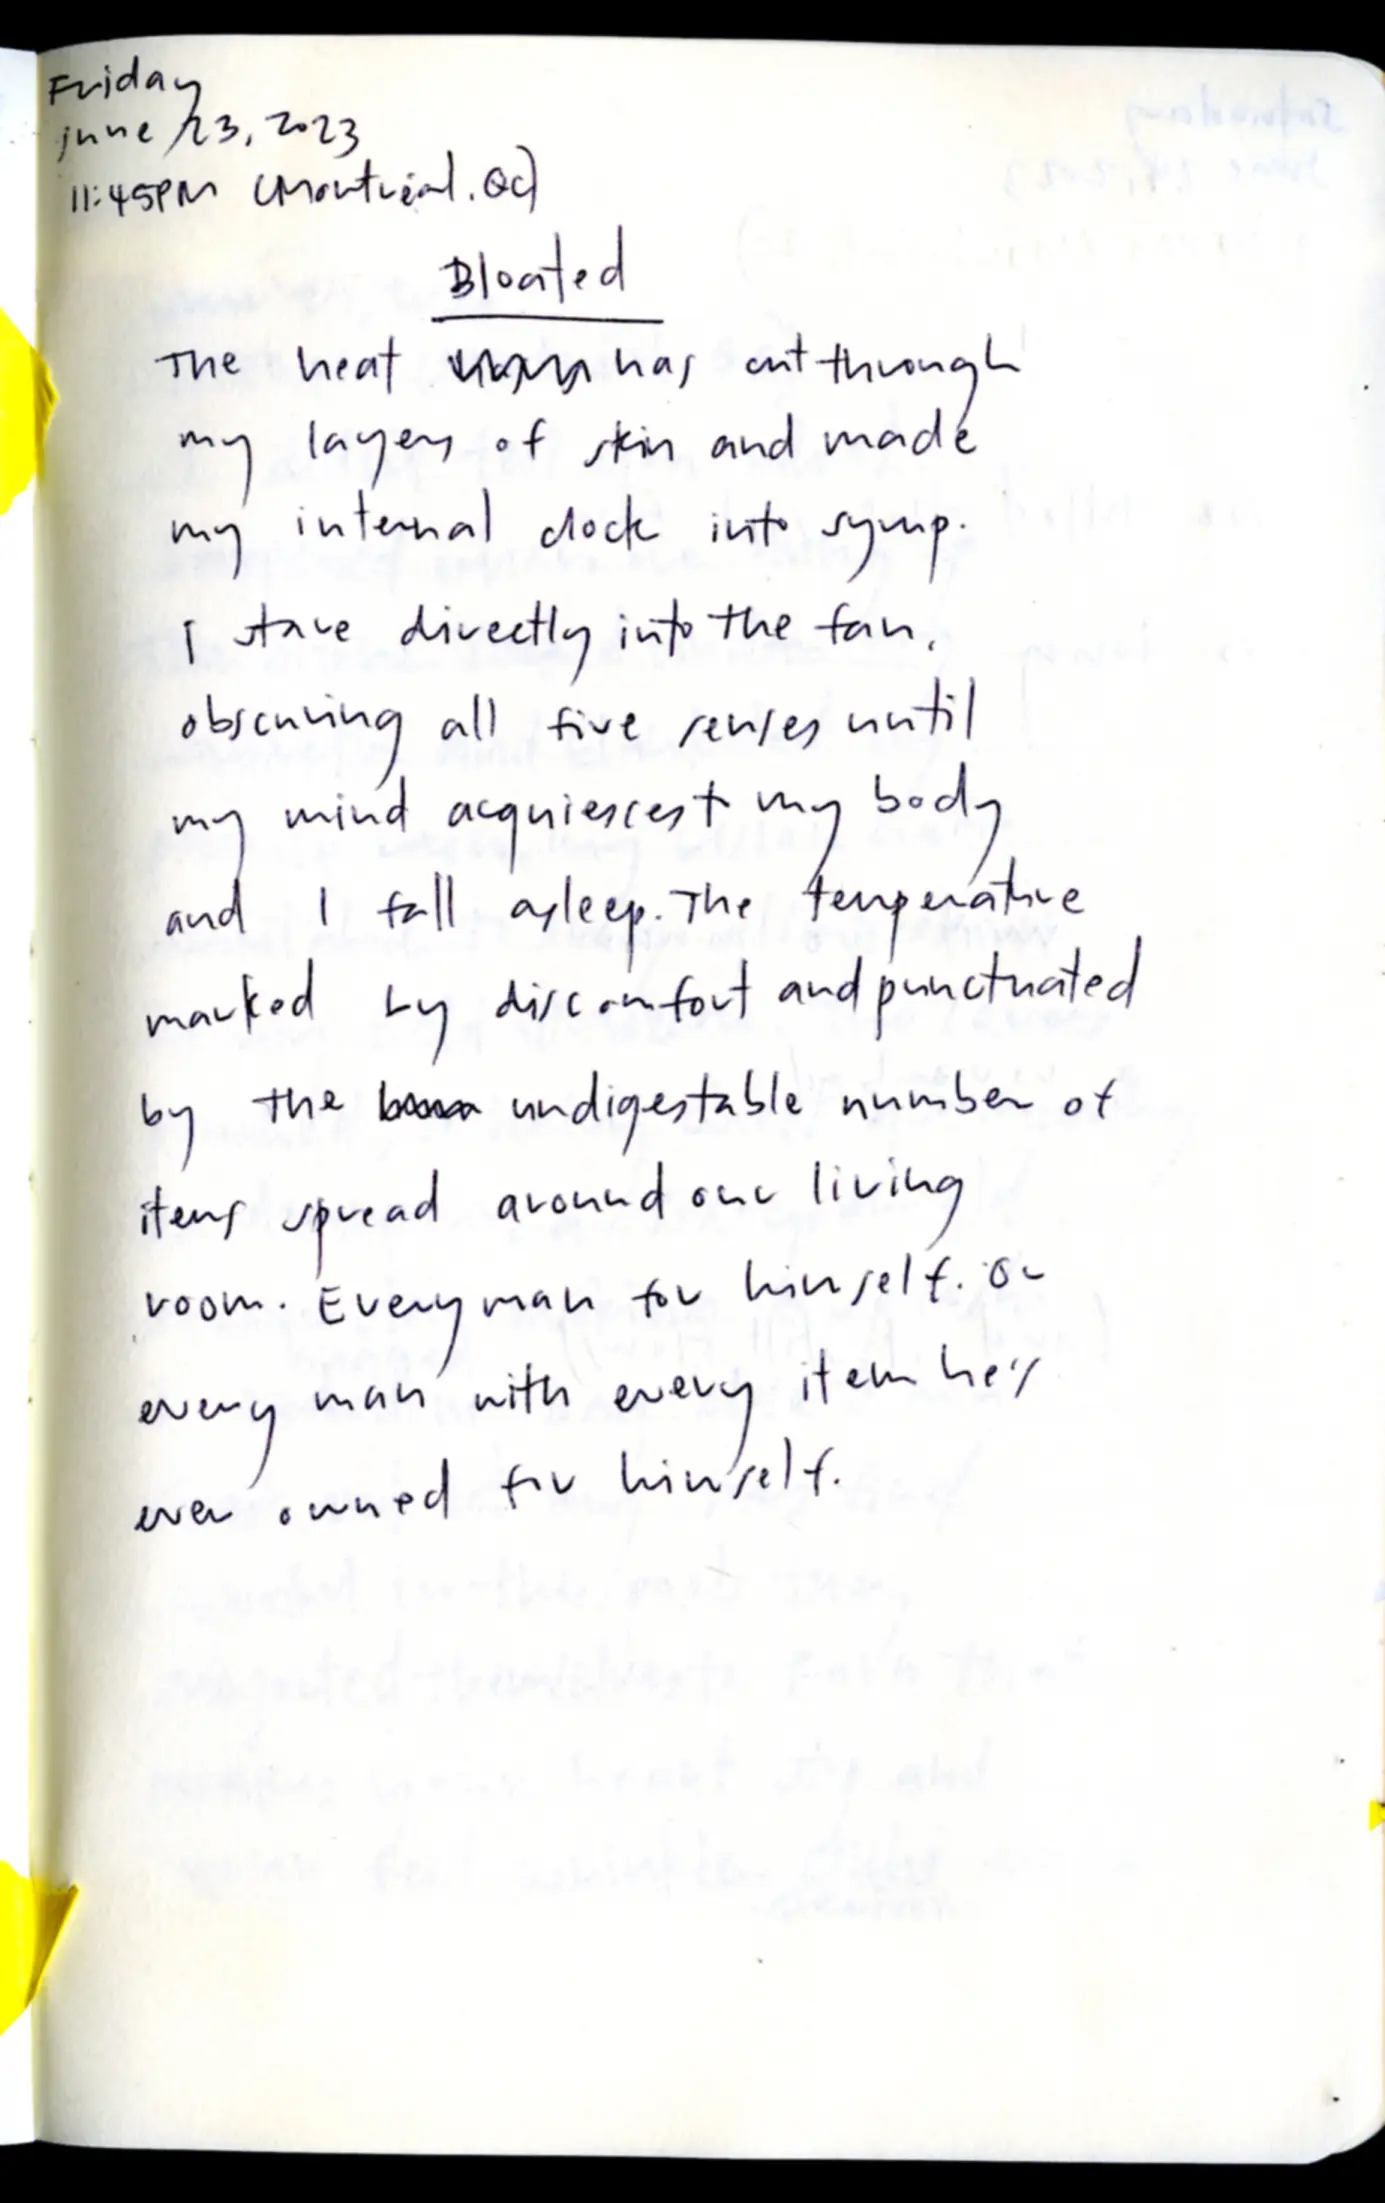 Friday
june 23, 2023
11:45PM (Montréal, QC)
Bloated
The heat has cut through
my layers of skin and made
my internal clock into syrup.
I stare directly into the fan,
obscuring all five senses until
my mind acquiesces t my body
and I fall asleep. The temperature
marked by discomfort and punctuated
by the undigestable number of
items spread around our living
room. Every man for himself. Or
every man with every item he's
ever owned for himself.